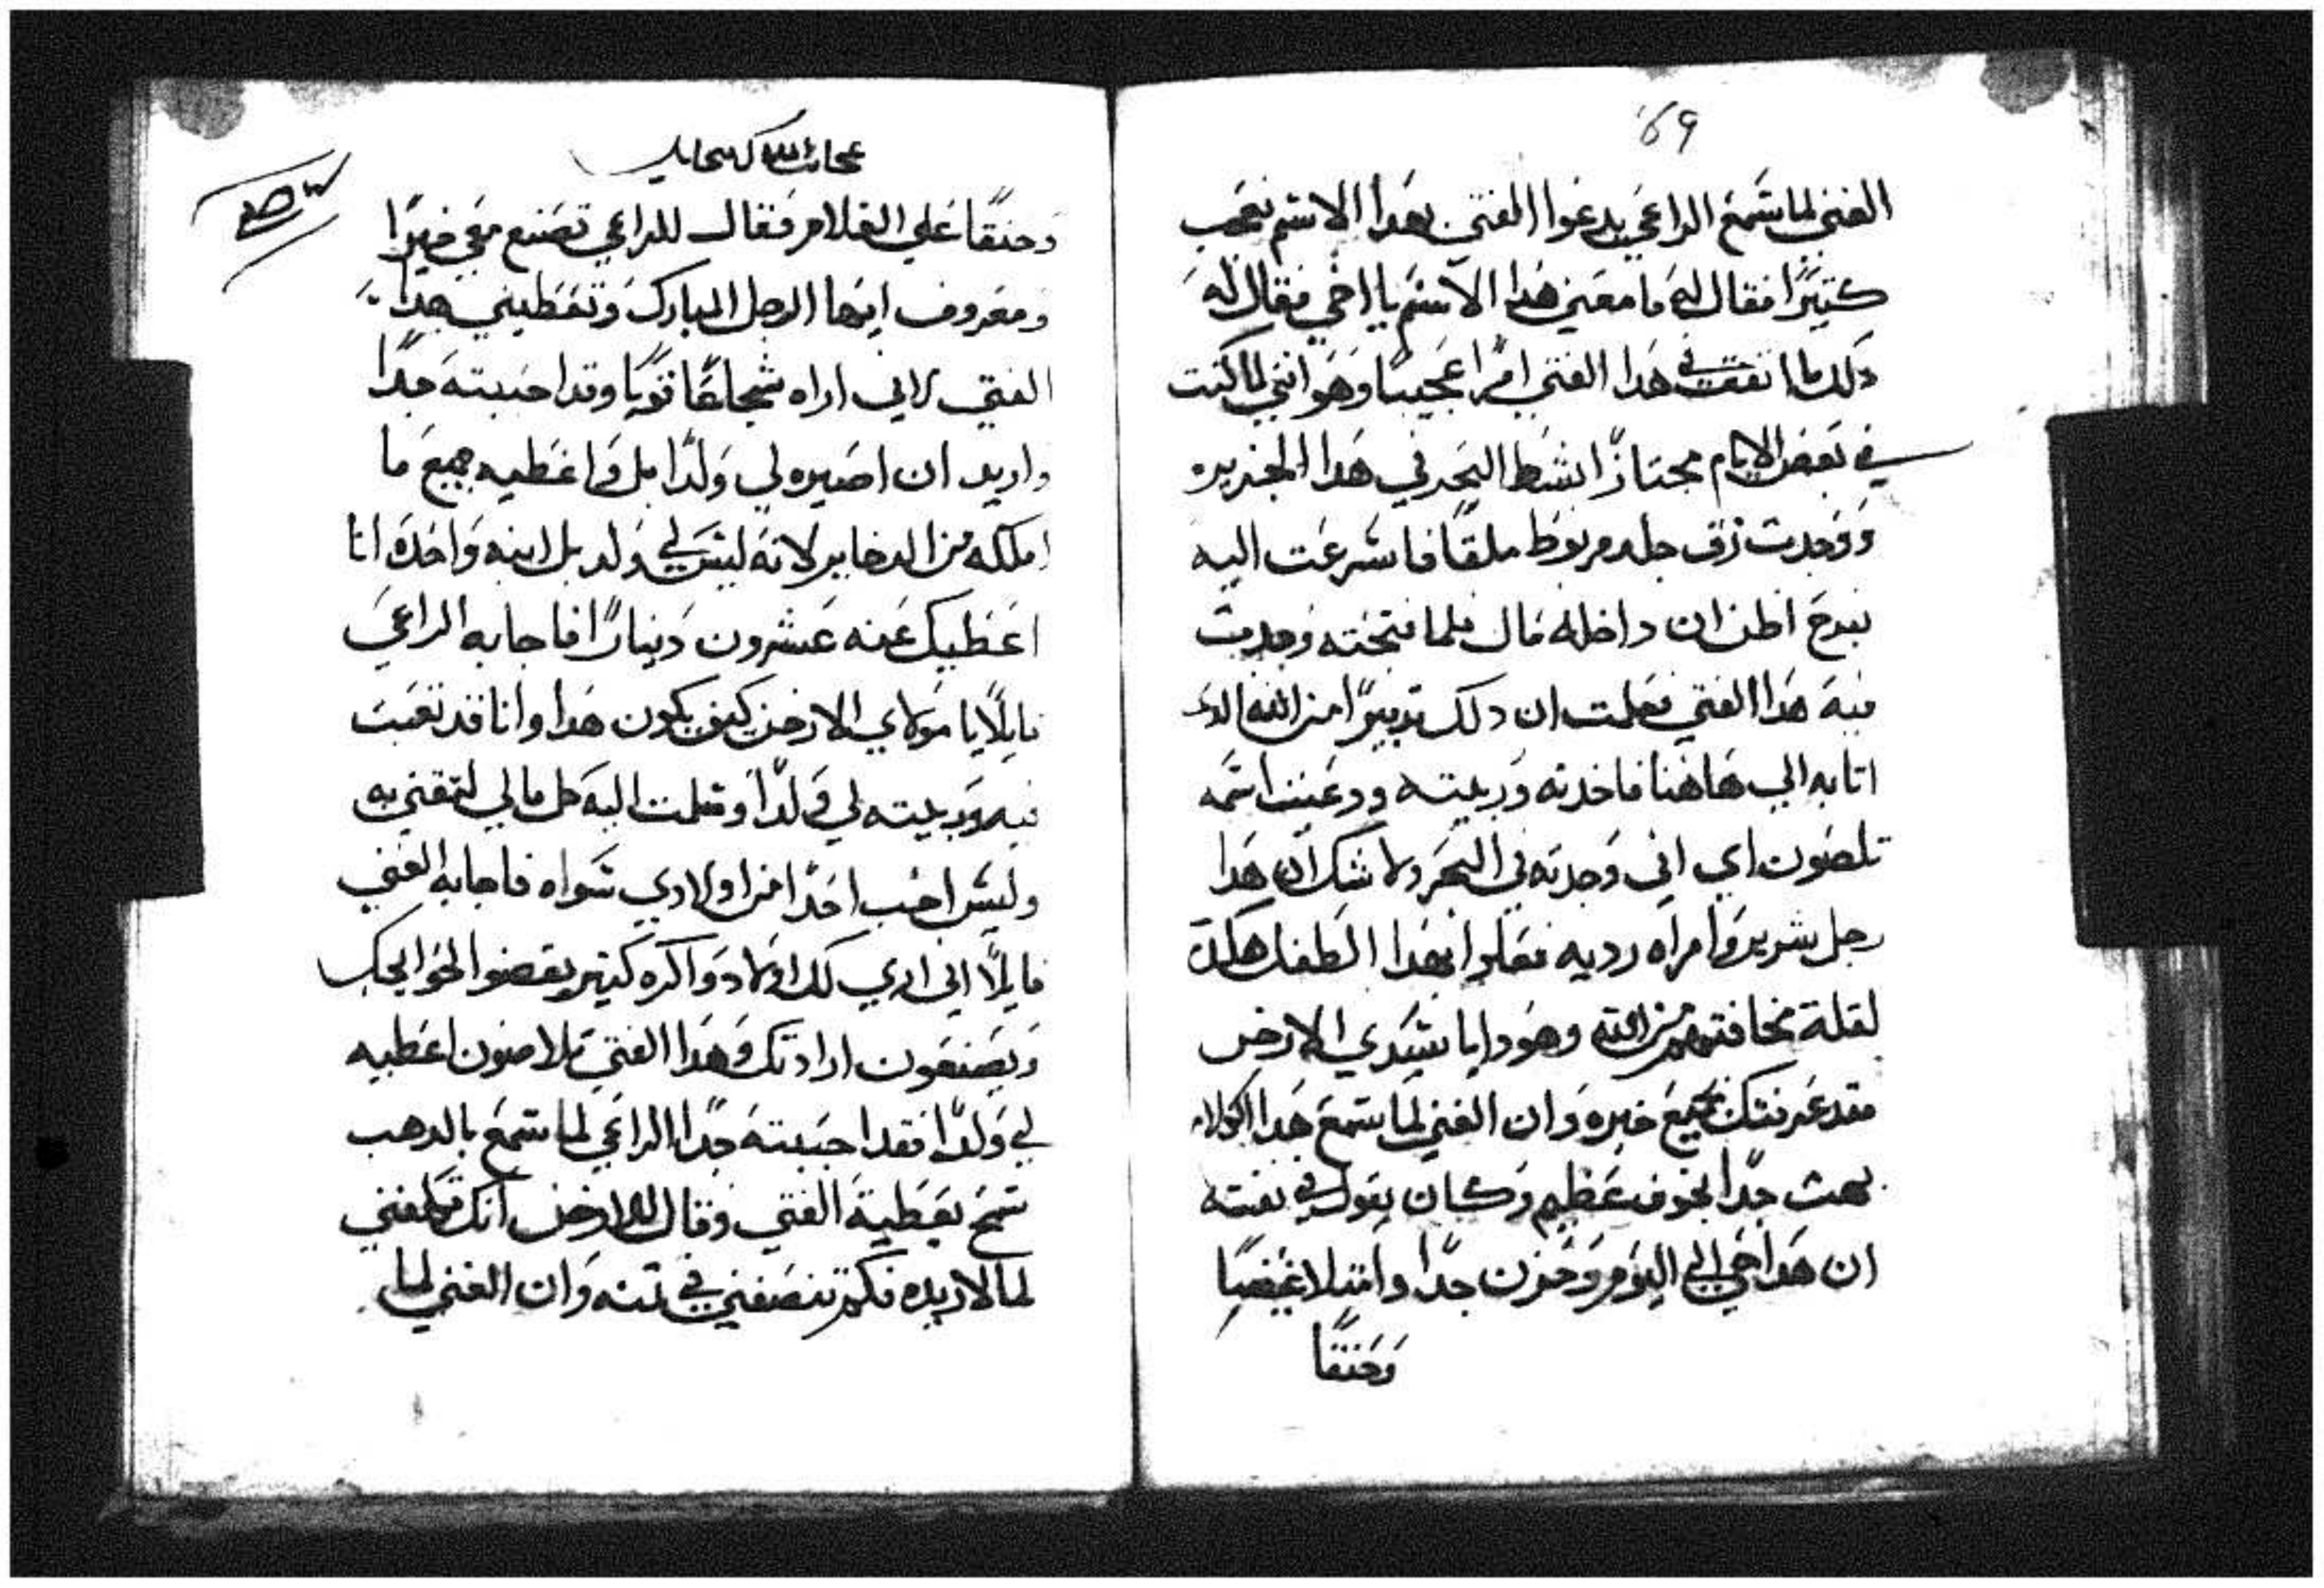 69
الغني لما سَمع الراعي يدعوا الفتي بهدا الاسم تعجب
كتيرًا فقال له ما معني هدا الاسم يا اخي فقال له
دلك ما اتفق في هدا الفتي امرًا عجيبا وهو انني لما كنت
في بعض الايام مجتازًا بشط البحر في هدا الجزيره
ووجدت زق جلد مربوط ملقا فاسرعت اليه
اظن ان داخله مال فلما فتحته وجدت
فيه هدا الفتي فعلمت ان دلك تدبيرًا من الله الدي
اتا به الي هاهنا فاخدته وربيته ودعيت اسمه
تلصون اي اني وجدته في البحر ولا شك ان هدا
رجل شرير وامراه رديه فعلوا بهدا الطفل هكدا
لقلة مخافتهم من الله وهودا يا سيدي الارخن
فقد عرفتك بجميع خبره وان الغني لما سمع هدا الكلام
بهت جدًا بخوف عظيم وكان يقول في نفسه
ان هدا حي الي اليوم وحزن جدًا وامتلا غيضًا
وحنقًا
وحنقًا علي الغلام فقال للراعي تصنع معي خيرًا
ومعروف ايها الرجل المبارك وتعطيني هدا
الفتي لاني اراه شجاعًا قويًا وقد احببته جدًا
واريد ان اصيره لي ولدًا بل واعطيه جميع ما
املكه من الدخاير لانه ليس لي ولد بل ابنه واحده انا
اعطيك عنه عشرون دينارًا فاجابه الراعي
قايلًا يا مولاي الارخن كيف يكون هدا وانا قد تعبت
فيه وربيته لي ولدًا وتعلمت اليه كل مالي لثقتي به
وليس احب احدًا من اولادي سواه فاجابه الغني
قايلًا اني اري لك اولاد دواكره كتير يقضوا لحوايجك
ويصنعون ارادتك وهدا الفتي تلاصون اعطيه
لي ولدًا فقد احببته جدًا الراعي لما سمع بالدهب
سمح بعطية الفتي وقال للارخن انك تكلفني
لما لا اريده فكم تنصفني في تمنه وان الغني لما